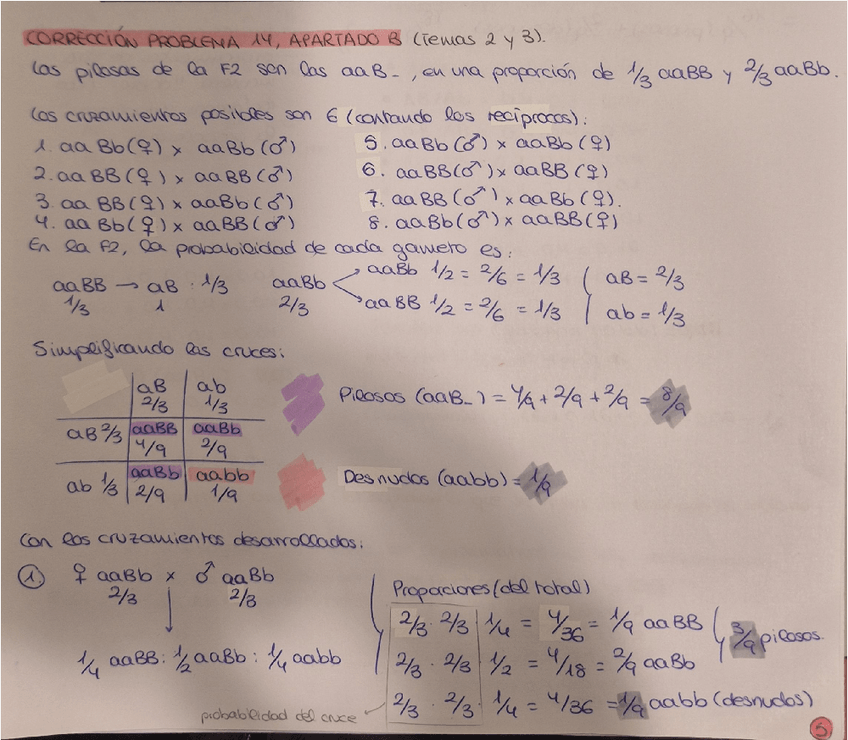 CORRECCIÓN PROBLEMA 14, APARTADO B (Temas 2 y 3).
Las pilosas de la F2 son las aaB_, en una proporción de 1/3 aaBB y 2/3 aaBb.
Los cruzamientos posibles son 6 (contando los recíprocos):
1. aaBb(♀) x aaBb(♂)
2. aaBB(♀) x aaBB(♂)
3. aaBB(♀) x aaBb(♂)
4. aaBb(♀) x aaBB(♂)
5. aaBb(♂) x aaBb(♀)
6. aaBB(♂) x aaBB(♀)
7. aaBB(♂) x aaBb(♀).
8. aaBb(♂) x aaBB(♀)
En la F2, la probabilidad de cada gameto es:
aaBB → aB : 1/3
1/3 1
aaBb
2/3
aaBb 1/2 = 2/6 = 1/3
aaBB 1/2 = 2/6 = 1/3
aB = 2/3
ab = 1/3
Simplificando las cruces:
aB ab
2/3 1/3
aB 2/3 aaBB aaBb
4/9 2/9
ab 1/3 aaBb aabb
2/9 1/9
Pilosas (aaB_) = 4/9 + 2/9 + 2/9 = 8/9
Desnudos (aabb) = 1/9
Con los cruzamientos desarrollados:
1. ♀ aaBb x ♂ aaBb
2/3 2/3
1/4 aaBB : 1/2 aaBb : 1/4 aabb
Proporciones (del total)
2/3 · 2/3 1/4 = 4/36 = 1/9 aaBB
2/3 · 2/3 1/2 = 4/18 = 2/9 aaBb
3/9 pilosos.
2/3 · 2/3 · 1/4 = 4/36 = 1/9 aabb (desnudos)
probabilidad del cruce
5